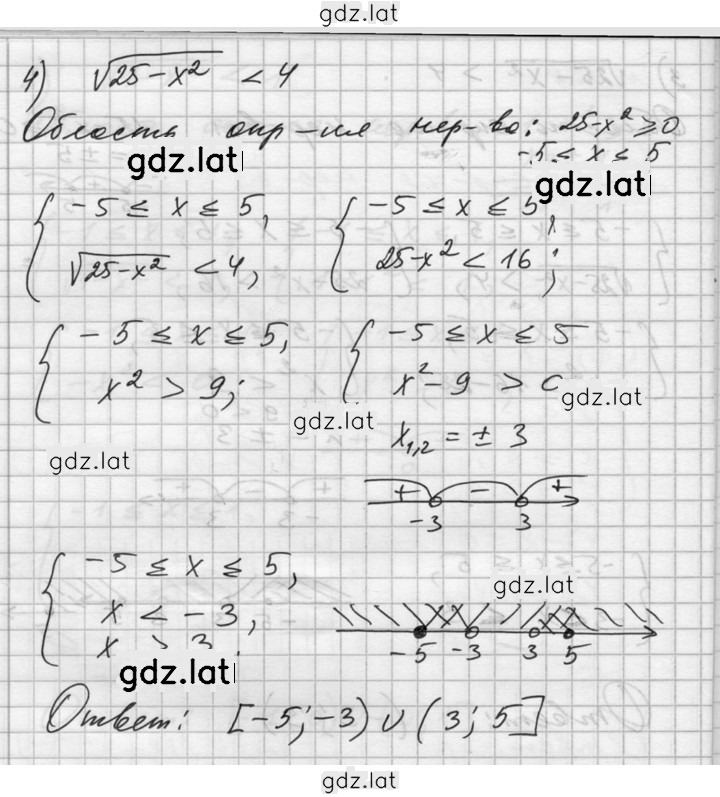 gdz.lat
4) √25-x² < 4
Область опр-ия нер-ва: 25-x² ≥ 0
-5 ≤ x ≤ 5
gdz.lat gdz.lat
{ -5 ≤ x ≤ 5, { -5 ≤ x ≤ 5,
√25-x² < 4, 25-x² < 16;
{ -5 ≤ x ≤ 5, { -5 ≤ x ≤ 5
x² > 9; x² - 9 > 0
gdz.lat
gdz.lat x₁,₂ = ± 3
gdz.lat
+ - +
-3 3
{ -5 ≤ x ≤ 5, gdz.lat
x < -3,
x > 3 -5 -3 3 5
gdz.lat
Ответ: [-5; -3) ∪ (3; 5]
gdz.lat